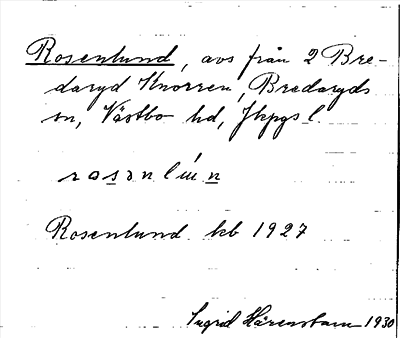 Rosenlund, avs från 2 Bre-
daryd Knorren, Bredaryds
sn, Västbo hd, Jkpgs l.
Rosenlund kb 1927
Ingrid Härenstam 1930